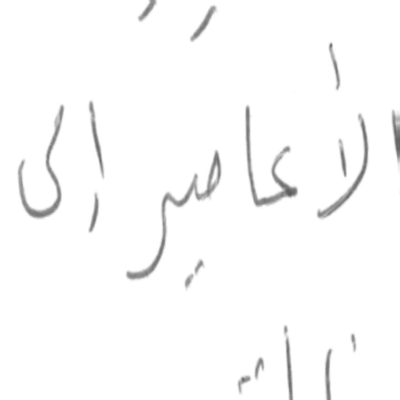 الأعاصير إلى